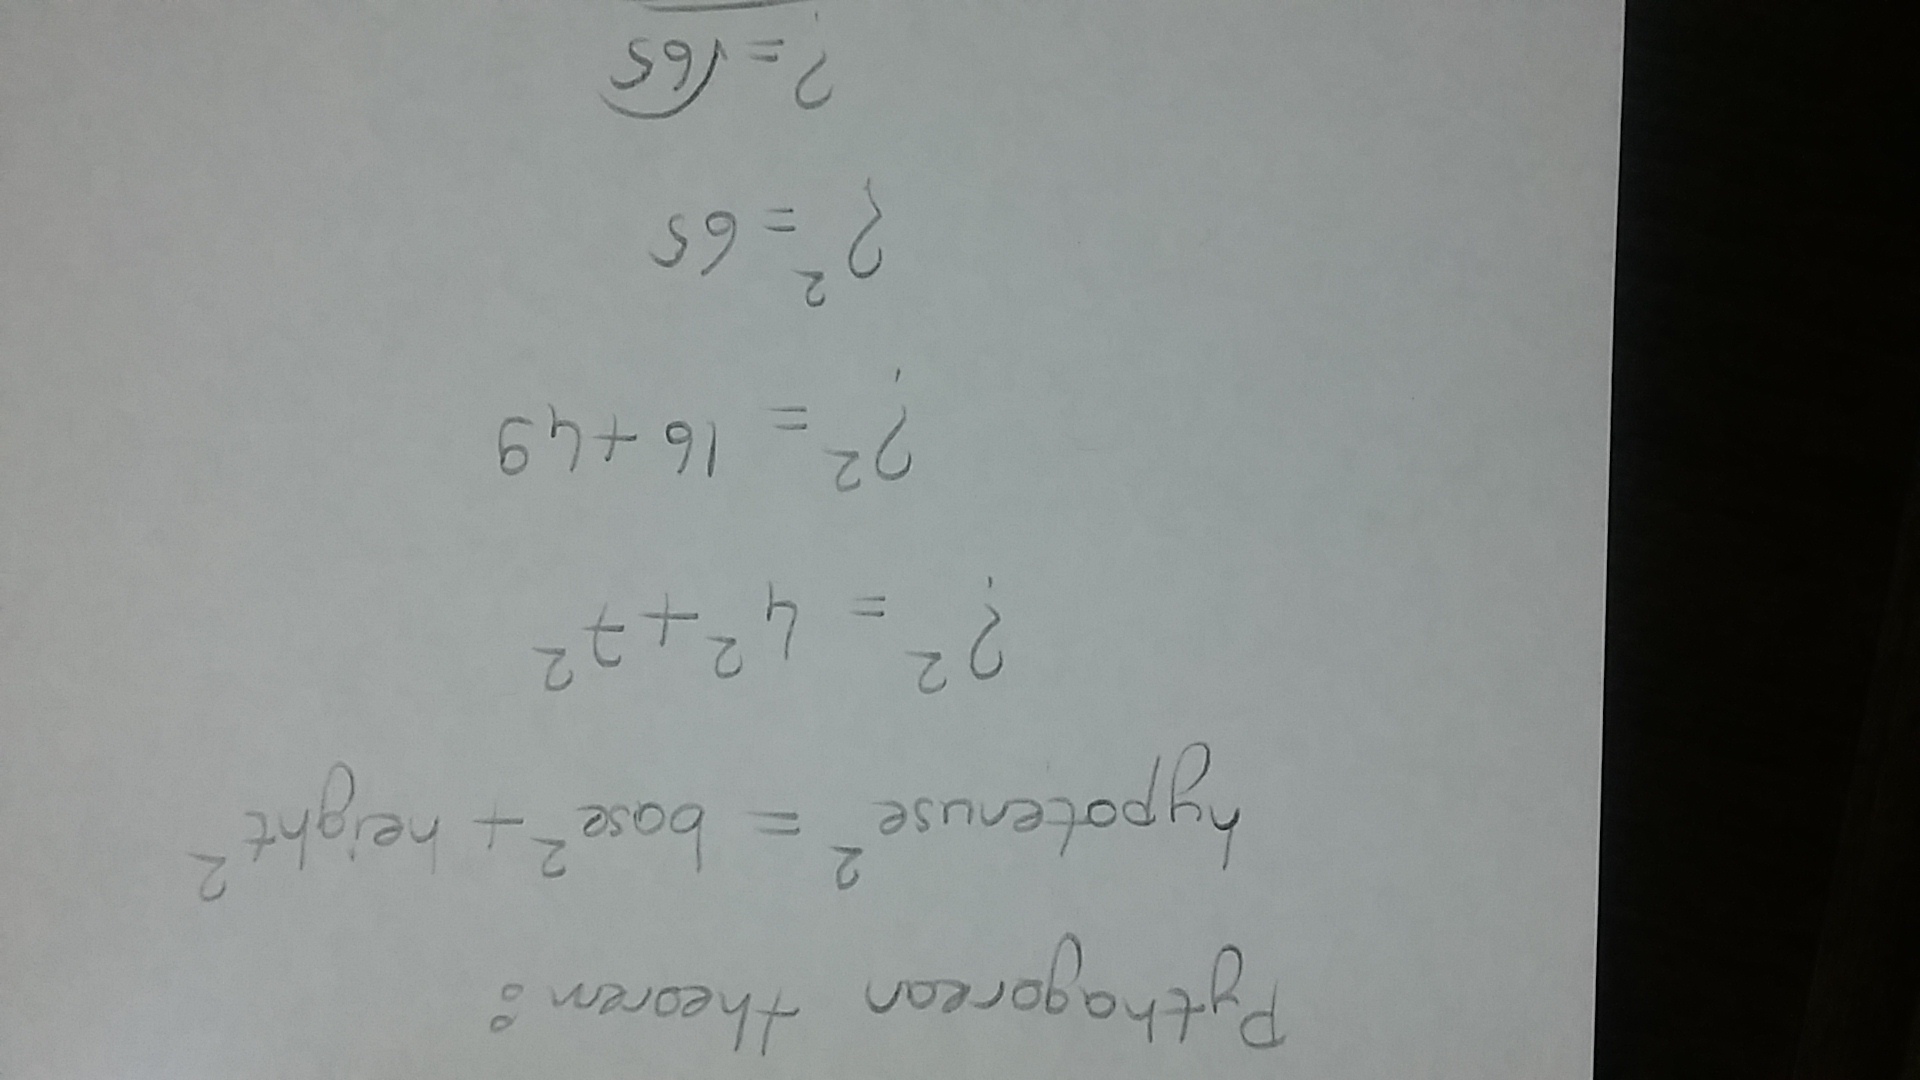 Pythagorean theorem:
hypotenuse² = base² + height²
?² = 4² + 7²
?² = 16 + 49
?² = 65
? = √65